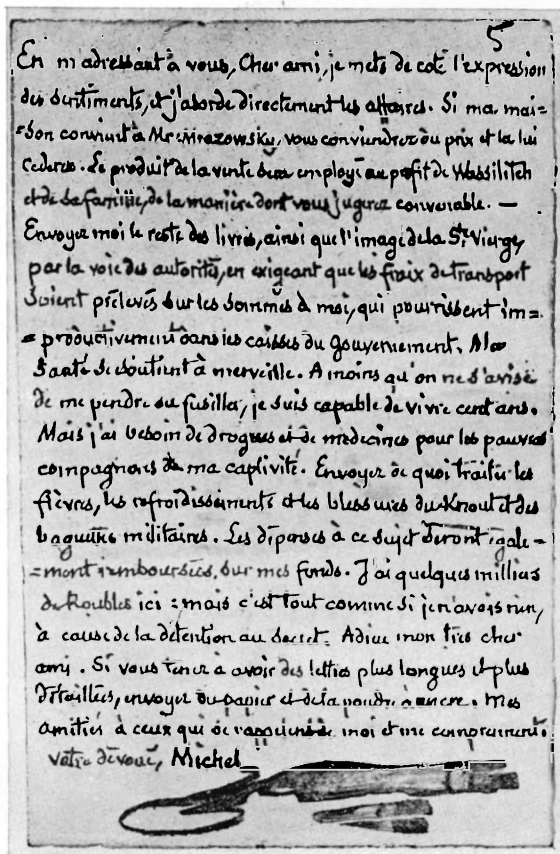 5
En m'adressant à vous, Cher ami, je mets de coté l'expression
des sentiments, et j'aborde directement les affaires. Si ma mai=
=son convient à Mr Mrazowsky, vous conviendrez du prix et la lui
cederez. Le produit de la vente sera employé au profit de Wassilitch
et de sa famille, de la manière dont vous jugerez convenable. —
Envoyez moi le reste des livres, ainsi que l'image de la Ste Vierge,
par la voie des autorités, en exigeant que les fraix de transport
soient prélevés sur les sommes à moi, qui pourrissent im=
=productivement dans les caisses du gouvernement. Ma
Santé se soutient à merveille. A moins qu'on ne s'avise
de me pendre ou fusiller, je suis capable de vivre cent ans.
Mais j'ai besoin de drogues et de medecines pour les pauvres
compagnons de ma captivité. Envoyez de quoi traiter les
fièvres, les refroidissements et les blessures du Knout et des
baguettes militaires. Les dépenses à ce sujet seront égale=
=ment remboursées, sur mes fonds. J'ai quelques milliers
de Roubles ici : mais c'est tout comme si je n'avois rien,
à cause de la détention au secret. Adieu mon très cher
ami. Si vous tenez à avoir des lettres plus longues et plus
détaillées, envoyez du papier et de la poudre à encre. Mes
amitiés à ceux qui se rappellent de moi et me comprennent.
votre dévoué, Michel